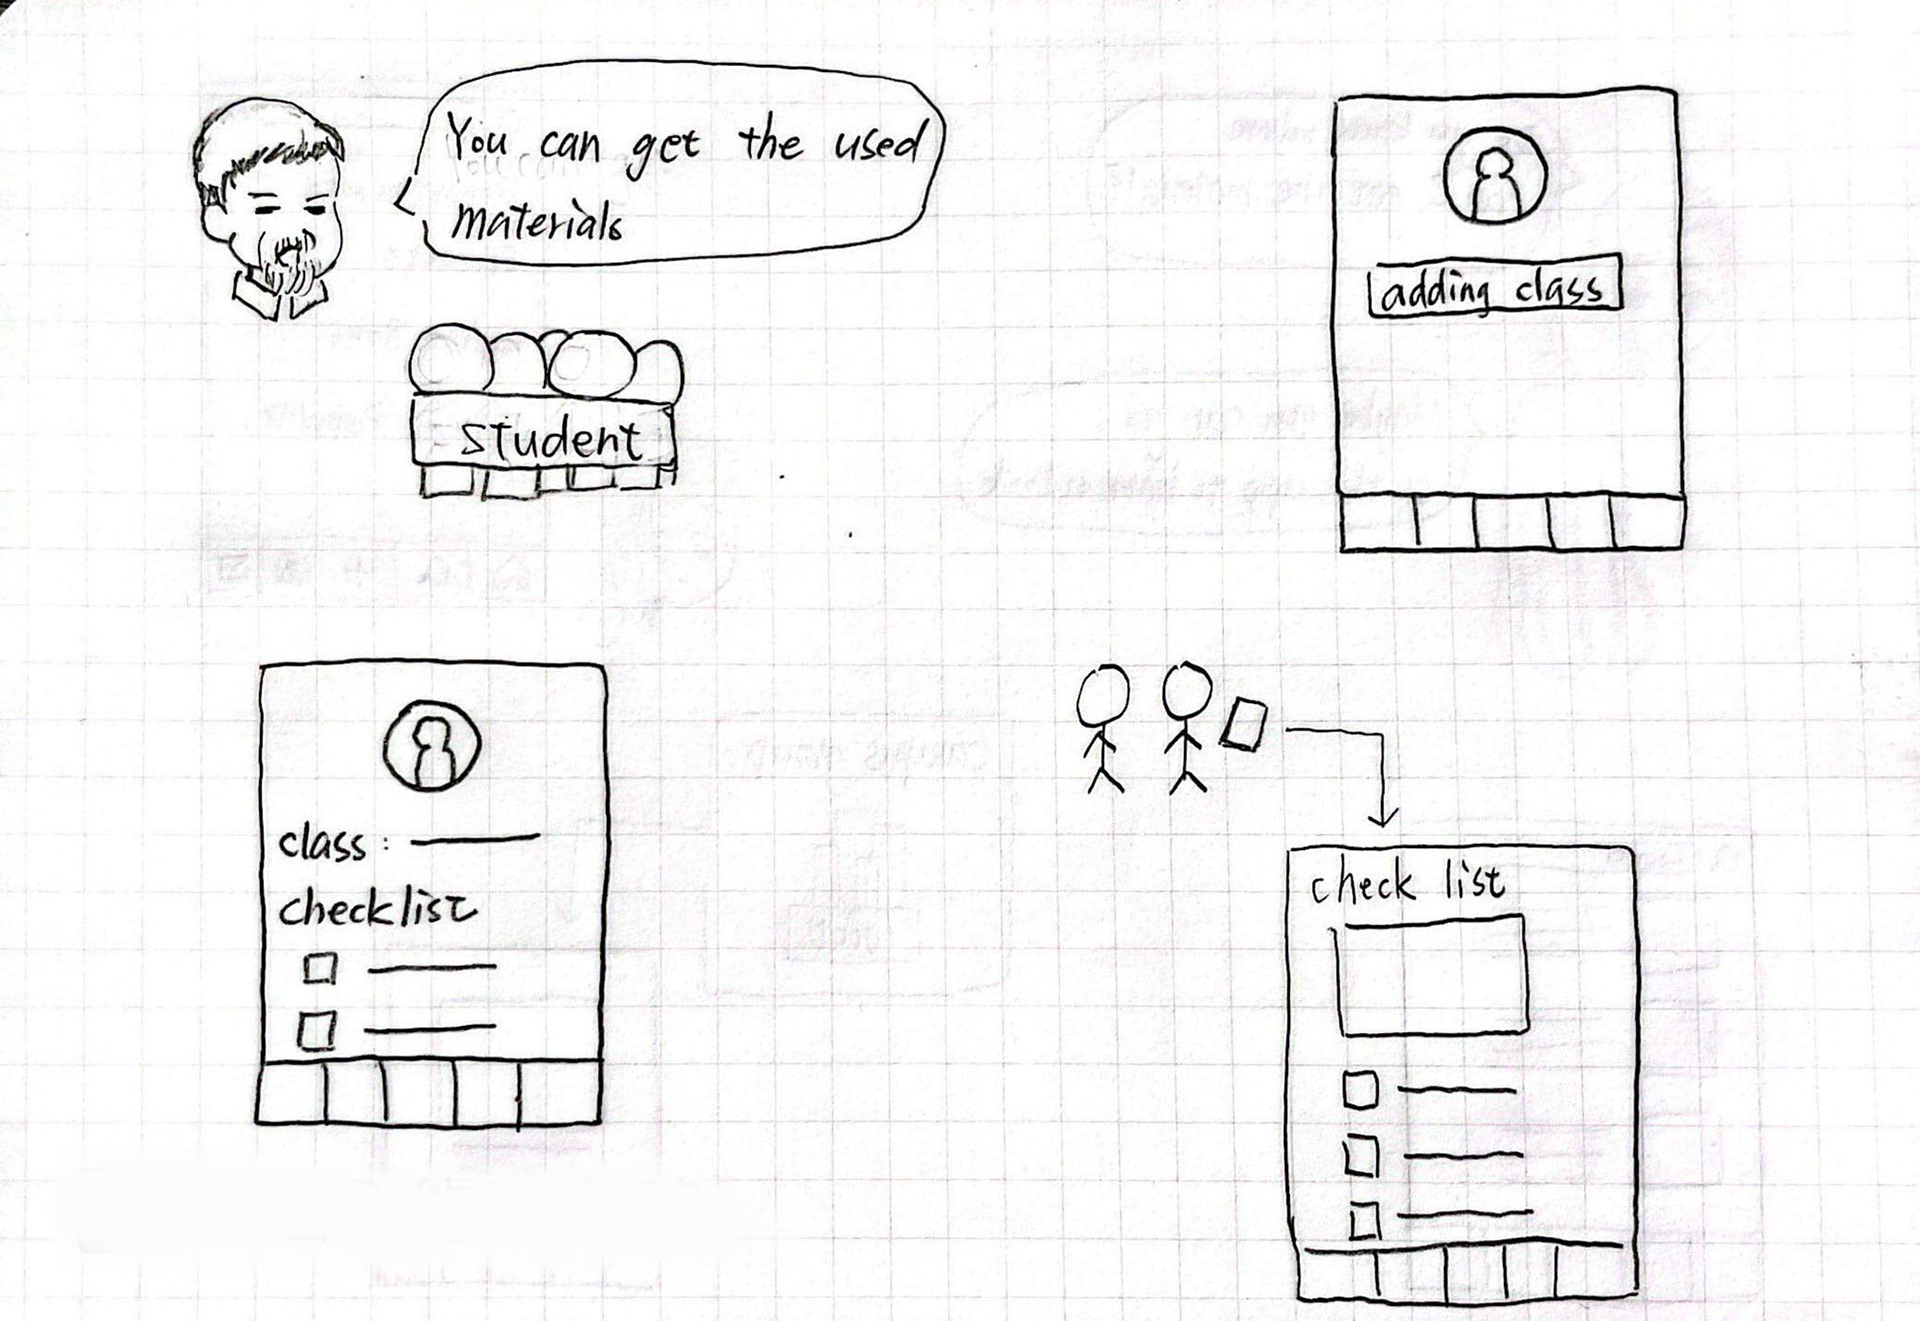 You can get the used
materials
student
adding class
class:
checklist
check list